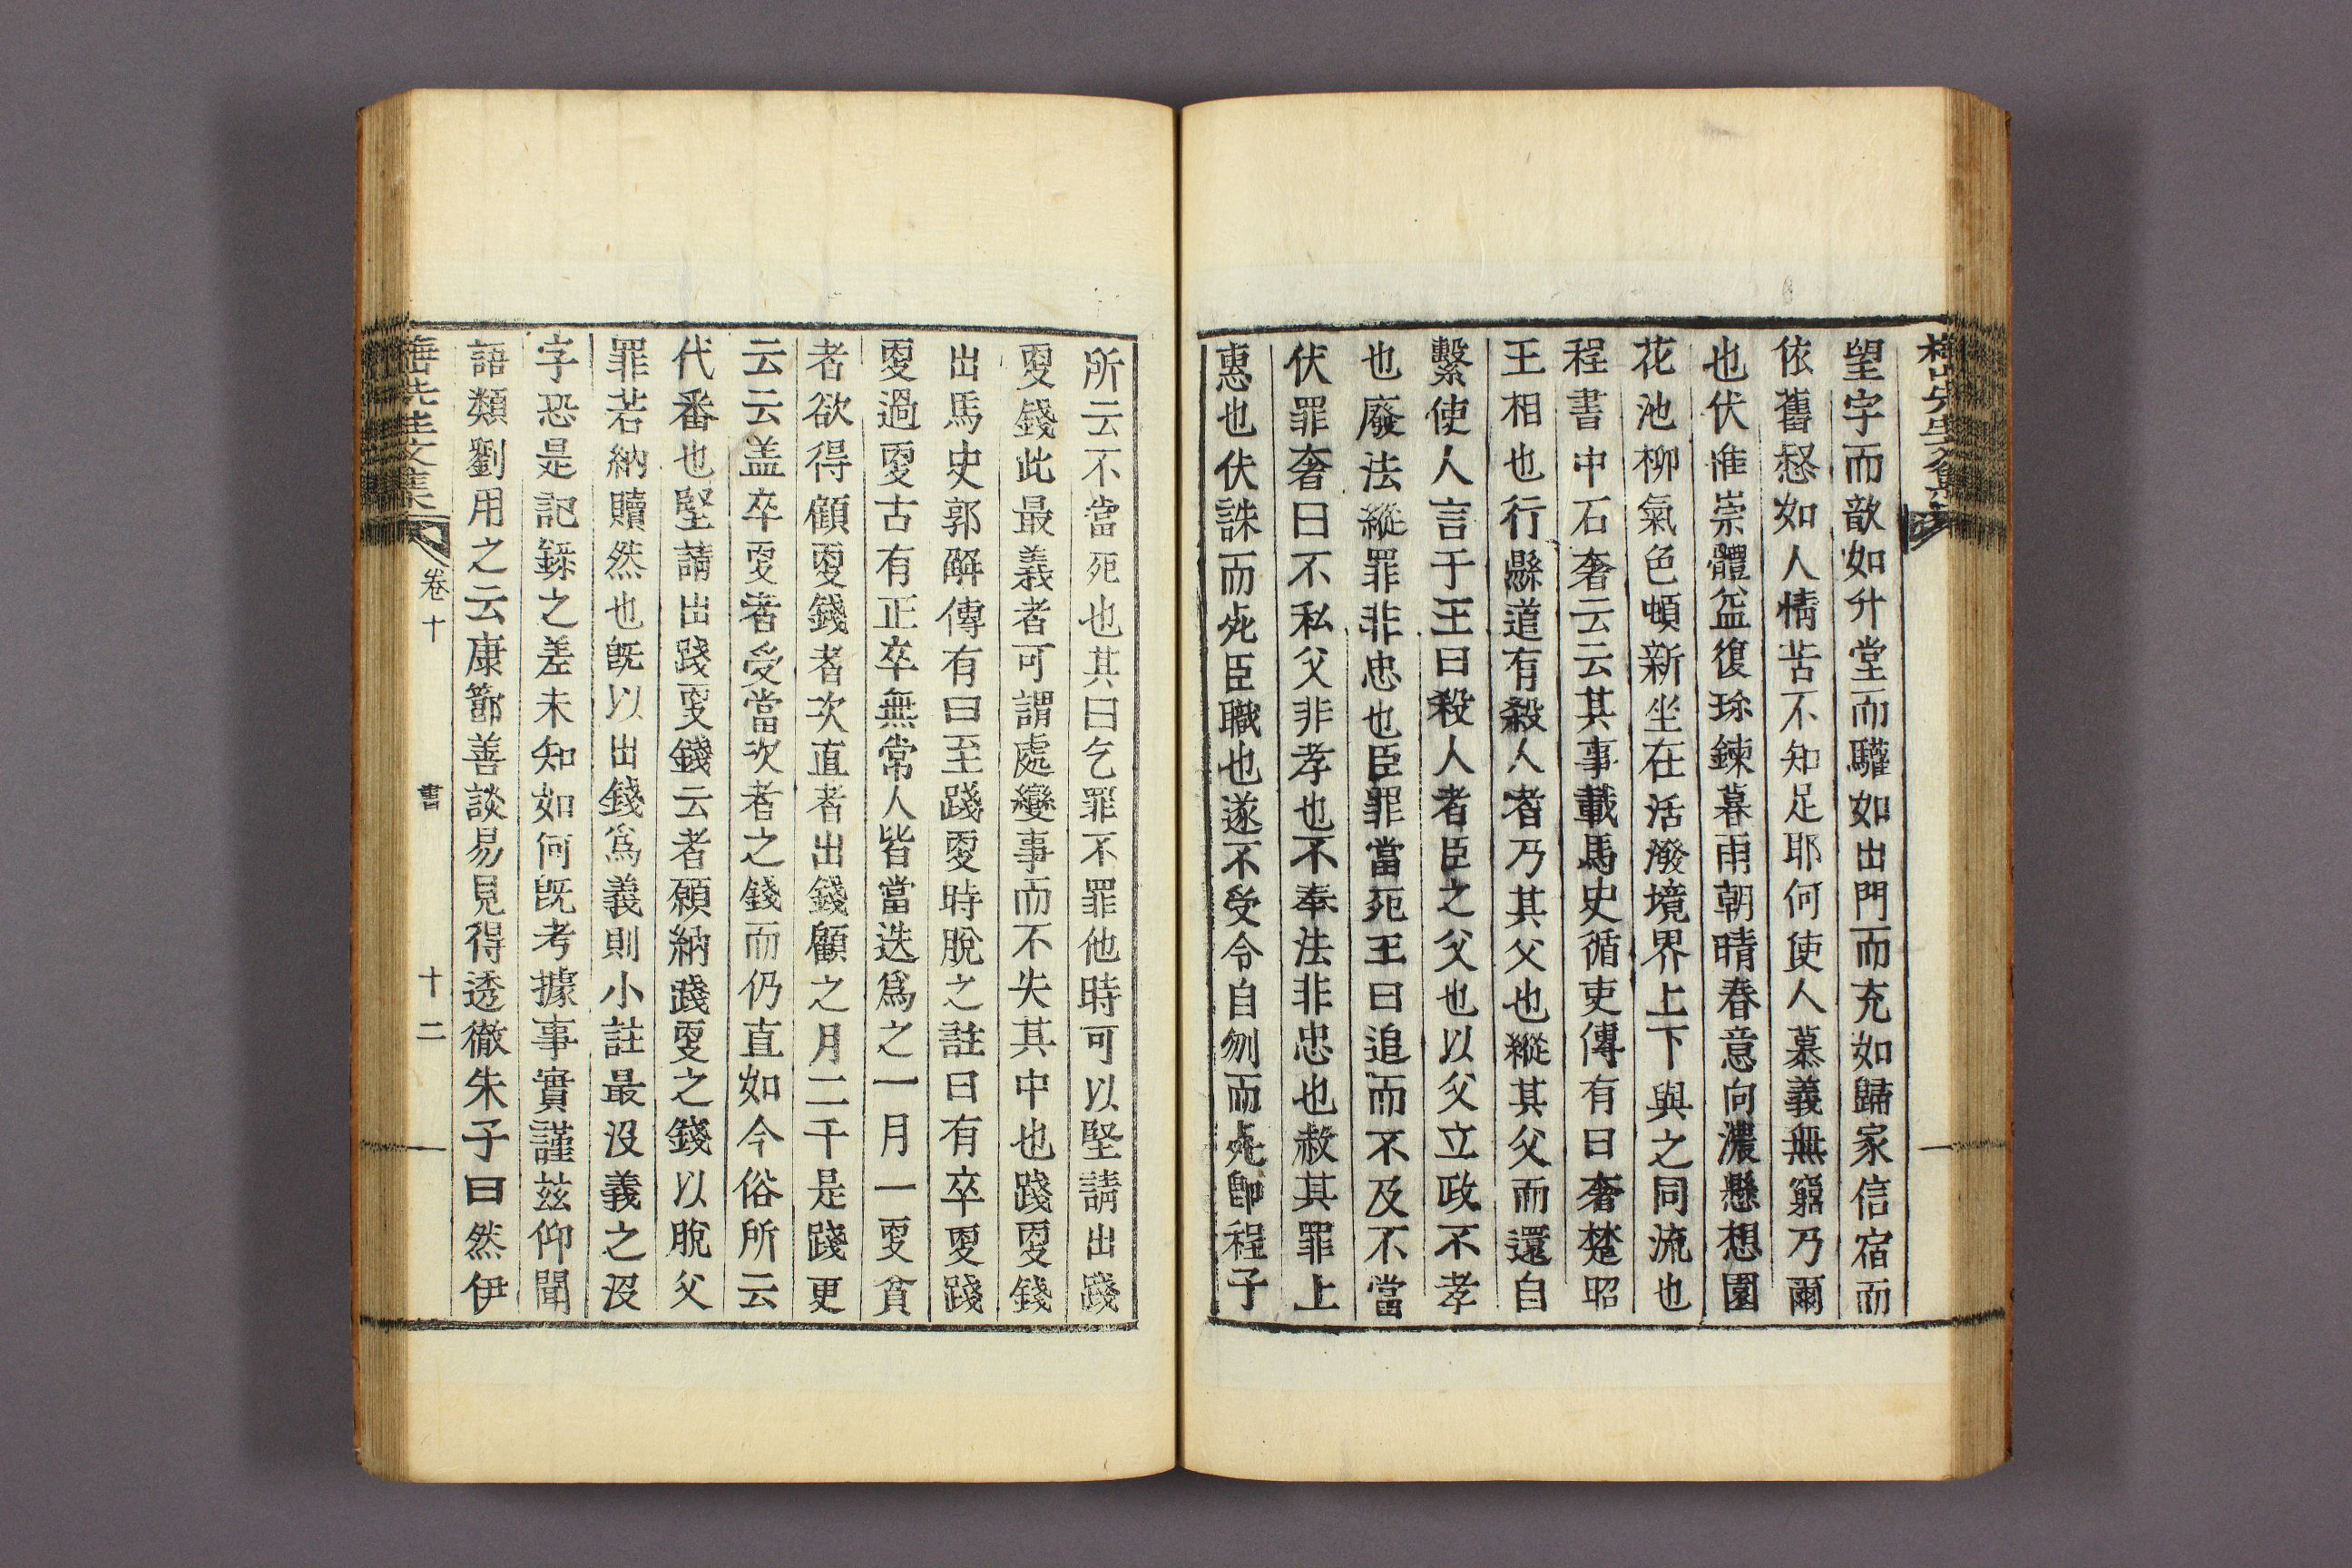 梅山先生文集
望宇而歆如升堂而驩如出門而充如歸家信宿而
依舊惄如人情苦不知足耶何使人慕義無窮乃爾
也伏惟崇體益復珎鍊暮雨朝晴春意向濃懸想園
花池柳氣色頓新坐在活潑境界上下與之同流也
程書中石奢云云其事載馬史循吏傳有曰奢楚昭
王相也行縣道有殺人者乃其父也縱其父而還自
繫使人言于王曰殺人者臣之父也以父立政不孝
也廢法縱罪非忠也臣罪當死王曰追而不及不當
伏罪奢曰不私父非孝也不奉法非忠也赦其罪上
惠也伏誅而死臣職也遂不受令自刎而死卽程子
所云不當死也其曰乞罪不罪他時可以堅請出踐
更錢此最義者可謂處變事而不失其中也踐更錢
出馬史郭解傳有曰至踐更時脫之註曰有卒更踐
更過更古有正卒無常人皆當迭爲之一月一更貧
者欲得顧更錢者次直者出錢顧之月二千是踐更
云云盖卒更者受當次者之錢而仍直如今俗所云
代番也堅請出踐更錢云者願納踐更之錢以脫父
罪若納贖然也旣以出錢爲義則小註最沒義之沒
字恐是記錄之差未知如何旣考據事實謹玆仰聞
語類劉用之云康節善談易見得透徹朱子曰然伊
梅山先生文集 卷十 書 十二